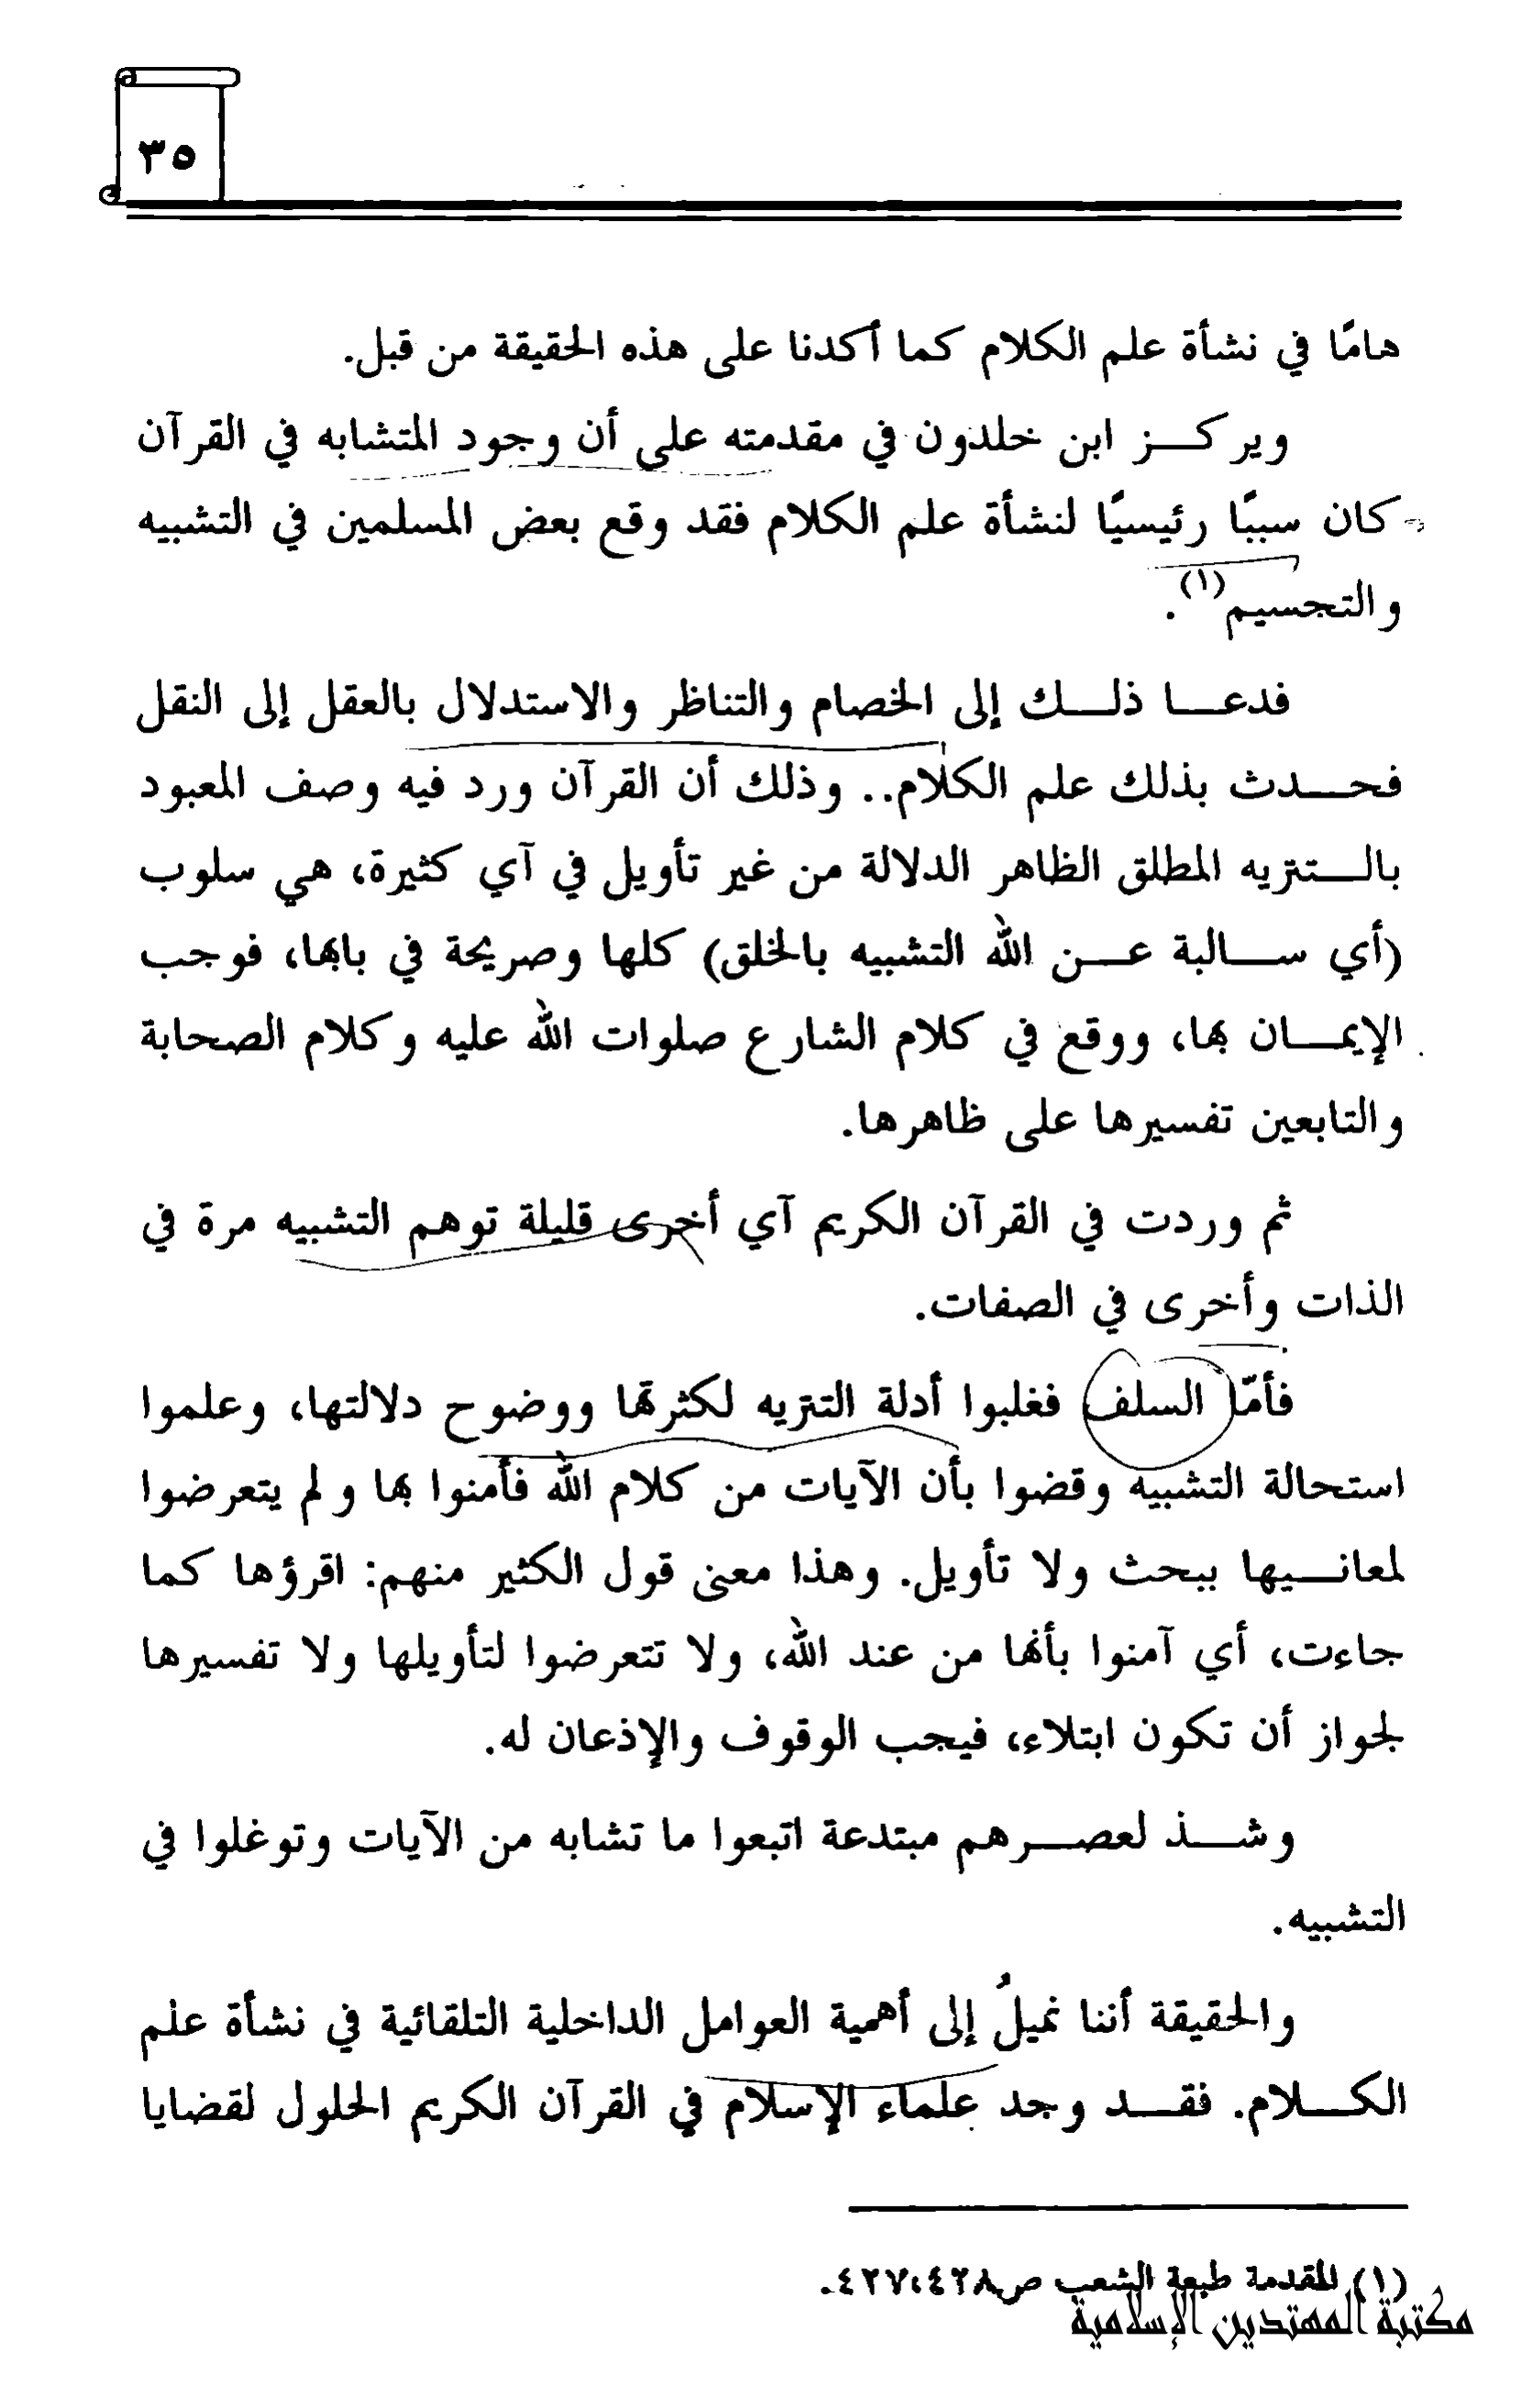 ٣٥
هامًا في نشأة علم الكلام كما أكدنا على هذه الحقيقة من قبل.
ويركز ابن خلدون في مقدمته على أن وجود المتشابه في القرآن
كان سببًا رئيسيًا لنشأة علم الكلام فقد وقع بعض المسلمين في التشبيه
والتجسيم(١).
فدعا ذلك إلى الخصام والتناظر والاستدلال بالعقل إلى النقل
فحدث بذلك علم الكلام.. وذلك أن القرآن ورد فيه وصف المعبود
بالتنزيه المطلق الظاهر الدلالة من غير تأويل في آي كثيرة، هي سلوب
(أي سالبة عن الله التشبيه بالخلق) كلها وصريحة في بابها، فوجب
الإيمان بها، ووقع في كلام الشارع صلوات الله عليه وكلام الصحابة
والتابعين تفسيرها على ظاهرها.
ثم وردت في القرآن الكريم آي أخرى قليلة توهم التشبيه مرة في
الذات وأخرى في الصفات.
فأمّا السلف فغلبوا أدلة التنزيه لكثرتها ووضوح دلالتها، وعلموا
استحالة التشبيه وقضوا بأن الآيات من كلام الله فأمنوا بها ولم يتعرضوا
لمعانيها ببحث ولا تأويل. وهذا معنى قول الكثير منهم: اقرؤها كما
جاءت، أي آمنوا بأنها من عند الله، ولا تتعرضوا لتأويلها ولا تفسيرها
لجواز أن تكون ابتلاء، فيجب الوقوف والإذعان له.
وشذ لعصرهم مبتدعة اتبعوا ما تشابه من الآيات وتوغلوا في
التشبيه.
والحقيقة أننا نميلُ إلى أهمية العوامل الداخلية التلقائية في نشأة علم
الكلام. فقد وجد علماء الإسلام في القرآن الكريم الحلول لقضايا
(١) المقدمة طبعة الشعب ص٤٢٧،٤٢٨.
مكتبة المهتدين الإسلامية